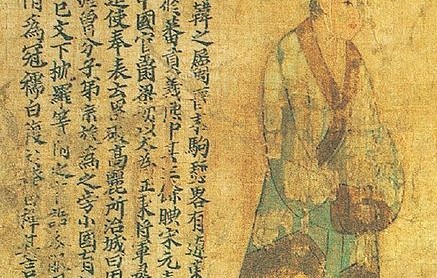 韓之屬晉末駒驪略有遼東
修蕃貢義熙中其王餘腆宋元
中國官爵梁初以太為征東將軍
遣使奉表云累破高麗所治城曰
魯分子弟宗族為之旁小國有
巳文下枕羅等附之言語衣
為冠襦曰複衫袴曰褌其言